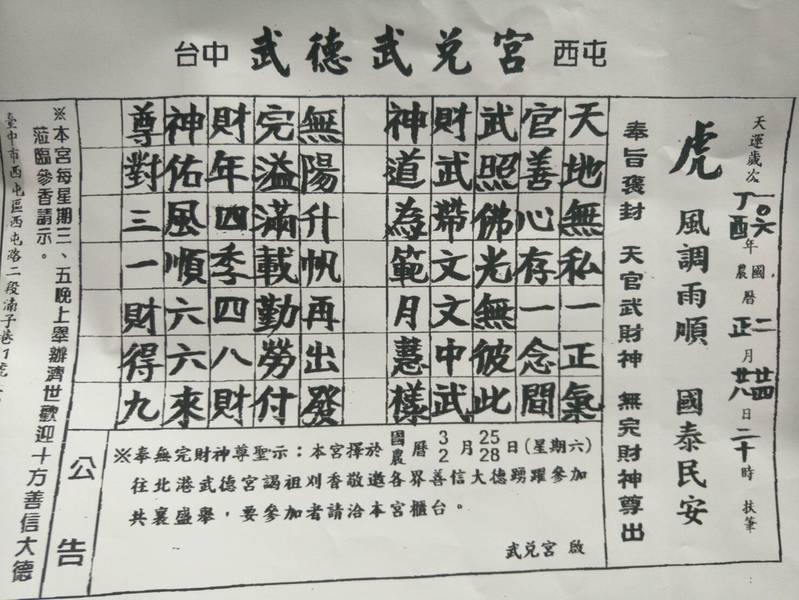 台中 武德武兌宮 西屯
天運歲次 一〇六 丁酉 年 國農曆 二正 月 廿四廿八 日 二十時 扶筆
虎 風調雨順 國泰民安
奉旨褒封 天官武財神 無完財神尊出
天地無私一正氣
官善心存一念間
武照佛光無彼此
財武帶文文中武
神道為範月慧樣
無陽升帆再出發
完溢滿載勤勞付
財年四季四八財
神佑風順六六來
尊對三一財得九
公告
※奉無完財神尊聖示：本宮擇於國曆3月25日(星期六)
農2 28
往北港武德宮謁祖刈香敬邀各界善信大德踴躍參加
共襄盛舉，要參加者請洽本宮櫃台。
武兌宮 啟
※本宮每星期三、五晚上舉辦濟世歡迎十方善信大德
蒞臨參香請示。
臺中市西屯區西屯路二段湳子巷1號